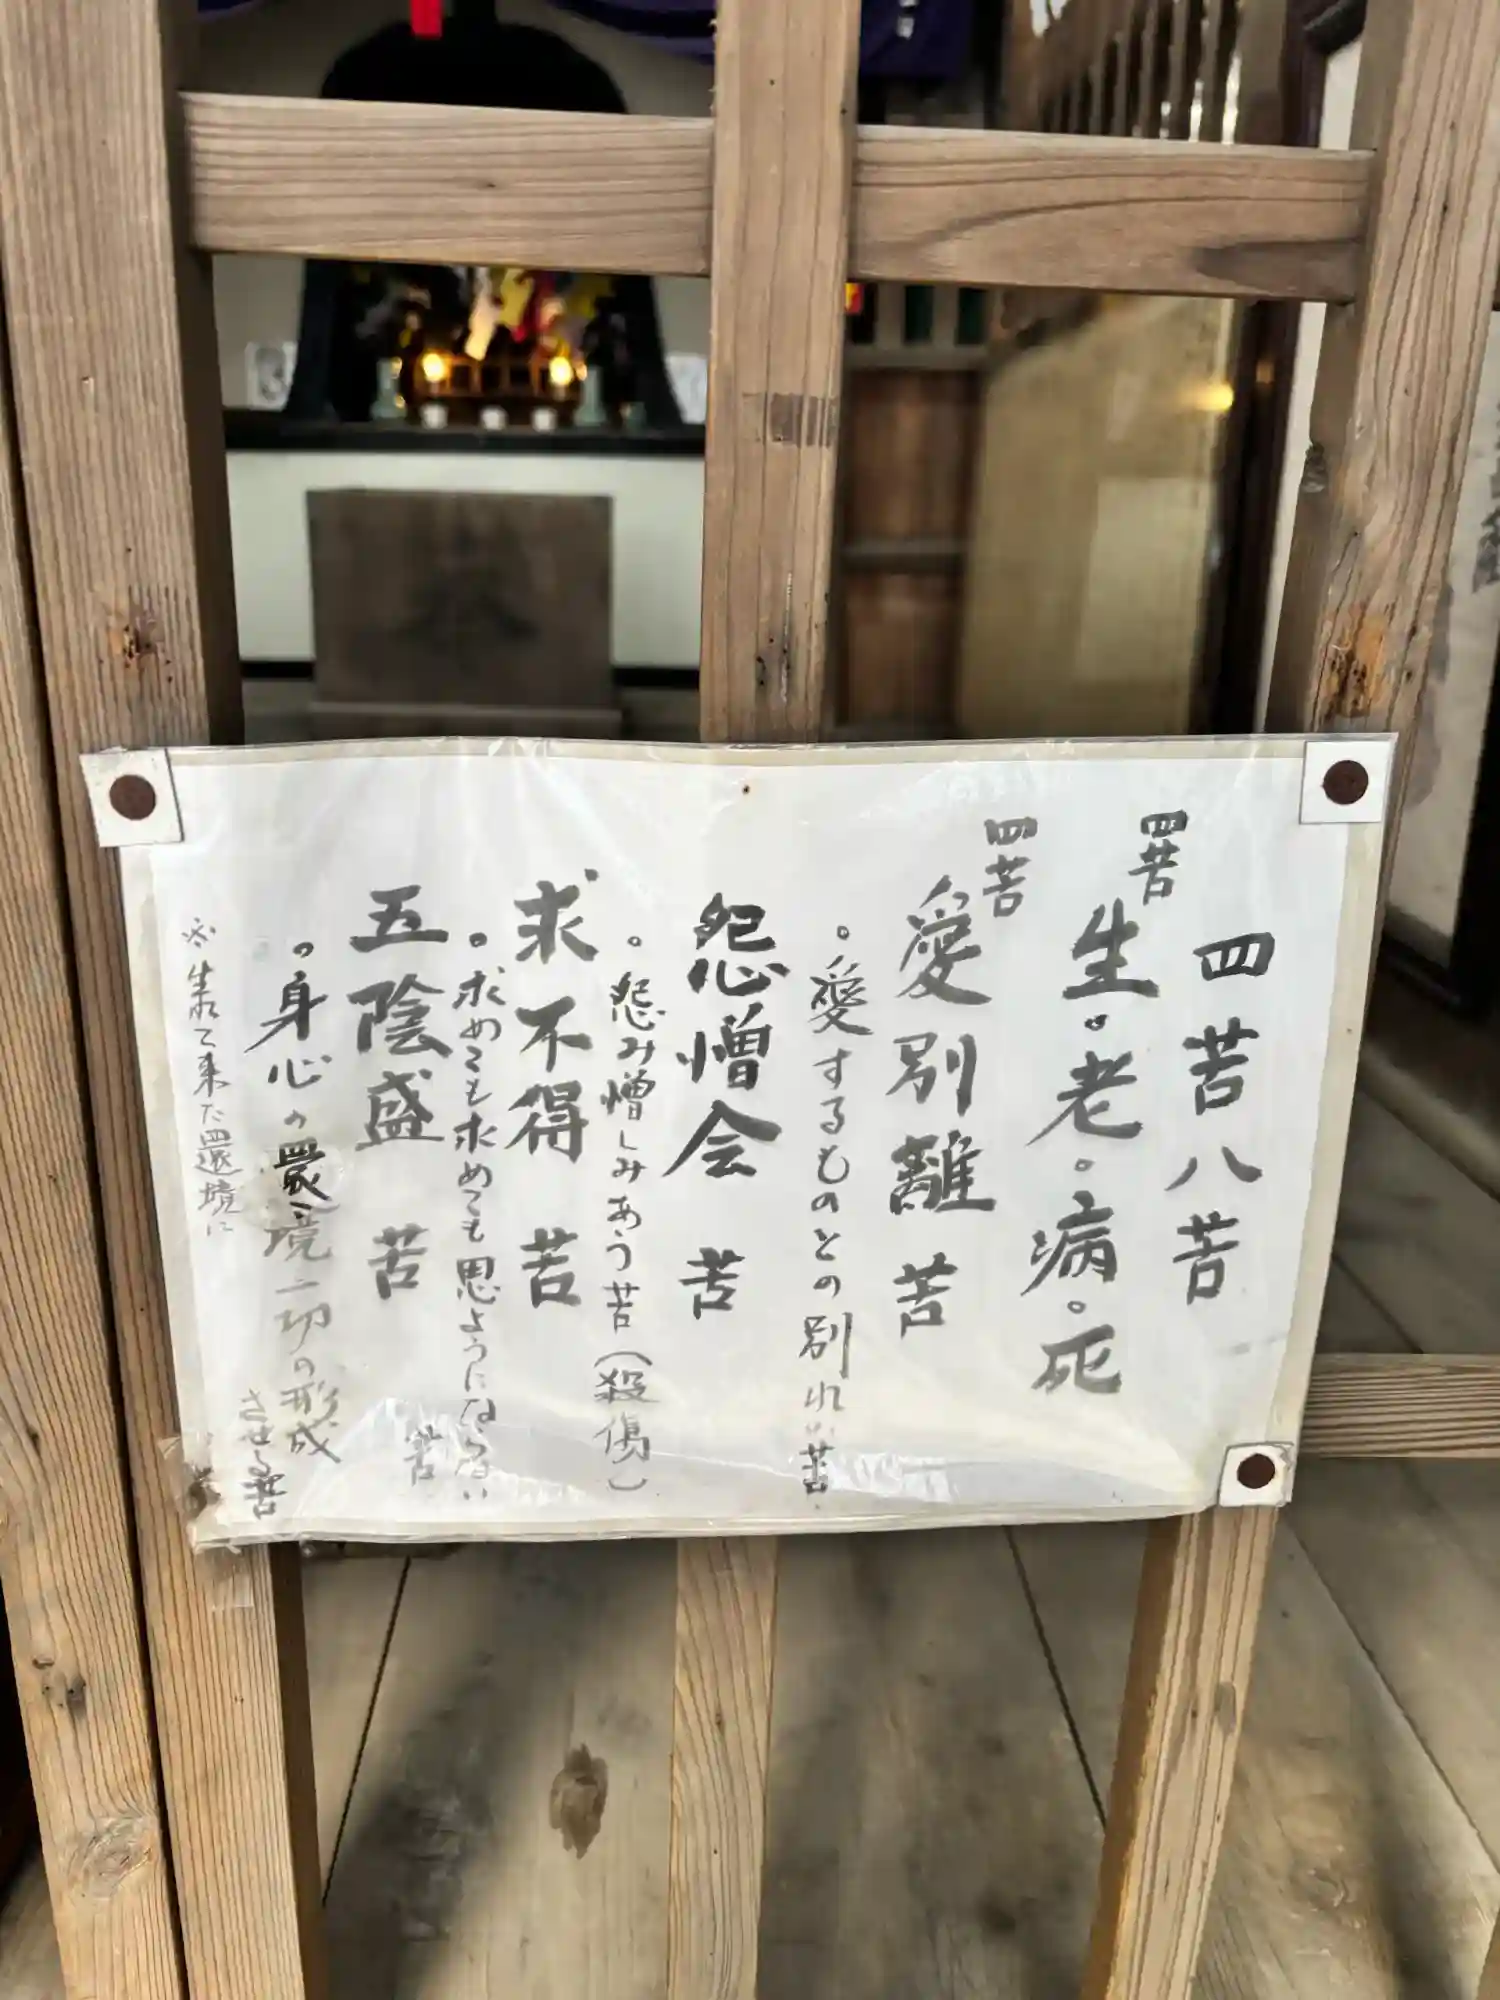 四苦八苦
四苦
生・老・病・死
四苦
愛別離 苦
。愛するものとの別れの苦
怨憎会 苦
。怨み憎しみあう苦(殺傷)
求不得 苦
。求めても求めても思ようにならない
苦
五陰盛 苦
。身心の環境一切の形成
させる苦
※生れて来た環境に